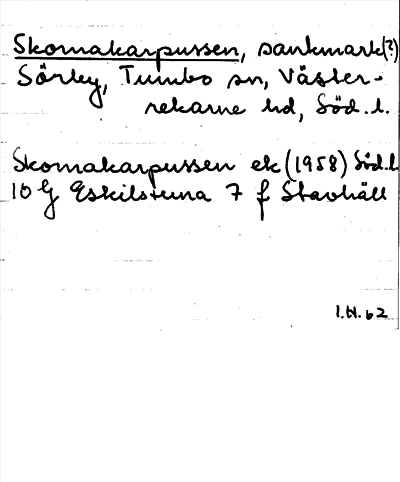 Skomakarpussen, sankmark(?)
Sörby, Tumbo sn, Väster-
rekarne hd, Söd. l.
Skomakarpussen ek (1958) Söd. l.
10 G Eskilstuna 7 f Stavhäll
1.H.62